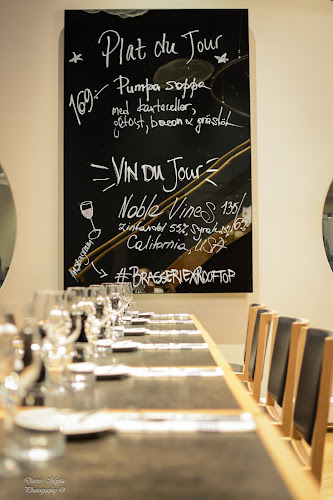 Plat du Jour
169:-
Pumpa soppa
med kantareller,
getost, bacon & gräslök
VIN DU JOUR
Noble Vines, 135/
Zinfandel 55%, Syrah
California, USA
Instagram
#BRASSERIEXROOFTOP
Photography ©